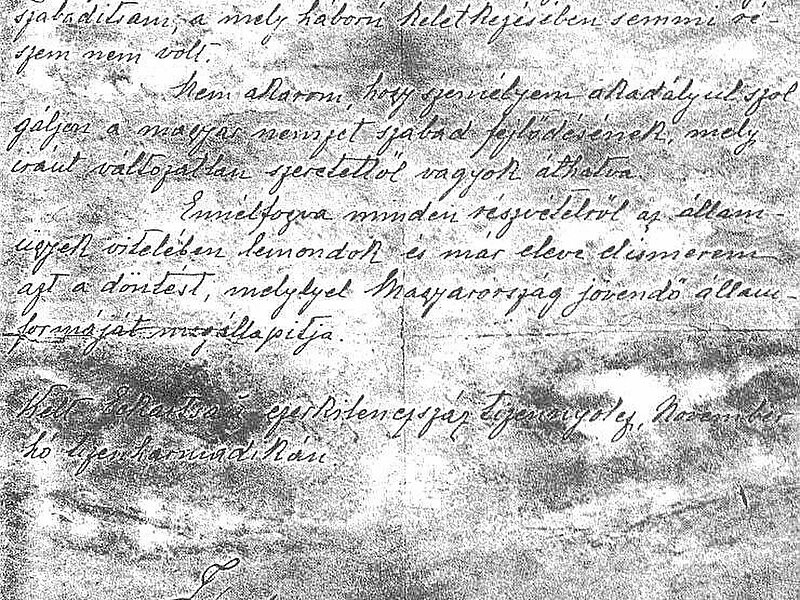 szabadítsam, a mely háború keletkezésében semmi ré-
szem nem volt.
Nem akarom, hogy személyem akadályul szol
gáljon a magyar nemzet szabad fejlődésének, mely
iránt változatlan szeretettől vagyok áthatva.
Ennélfogva minden részvételről az állam-
ügyek vitelében lemondok és már eleve elismerem
azt a döntést, melylyel Magyarország jövendő állam-
formáját megállapitja.
Kelt Eckartsau ezerkilencszáz tizennyolcz, November
hó tizenharmadikán.